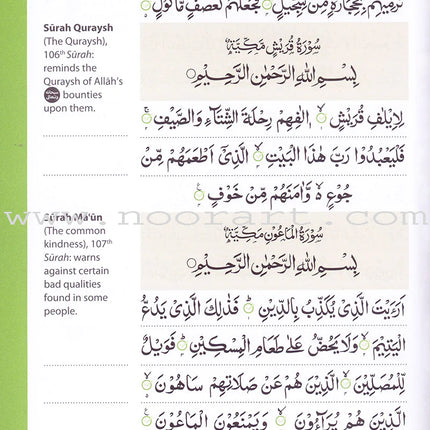 تَرْمِيْهِمْ بِحِجَارَةٍ مِّنْ سِجِّيْلٍ فَجَعَلَهُمْ كَعَصْفٍ مَّاْكُوْلٍ
Sūrah Quraysh
(The Quraysh),
106th Sūrah:
reminds the
Quraysh of Allāh's
bounties
upon them.
سُوْرَةُ قُرَيْشٍ مَكِّيَّةٌ
بِسْمِ اللهِ الرَّحْمٰنِ الرَّحِيْمِ
لِاِيْلٰفِ قُرَيْشٍ اٖلٰفِهِمْ رِحْلَةَ الشِّتَآءِ وَالصَّيْفِ
فَلْيَعْبُدُوْا رَبَّ هٰذَا الْبَيْتِ الَّذِيْٓ اَطْعَمَهُمْ مِّنْ
جُوْعٍ وَّاٰمَنَهُمْ مِّنْ خَوْفٍ
www.noorart.com
Sūrah Mā'ūn
(The common
kindness), 107th
Sūrah: warns
against certain
bad qualities
found in some
people.
سُوْرَةُ الْمَاعُوْنِ مَكِّيَّةٌ
بِسْمِ اللهِ الرَّحْمٰنِ الرَّحِيْمِ
اَرَءَيْتَ الَّذِيْ يُكَذِّبُ بِالدِّيْنِ فَذٰلِكَ الَّذِيْ يَدُعُّ
الْيَتِيْمَ وَلَا يَحُضُّ عَلٰى طَعَامِ الْمِسْكِيْنِ فَوَيْلٌ
لِّلْمُصَلِّيْنَ الَّذِيْنَ هُمْ عَنْ صَلَاتِهِمْ سَاهُوْنَ
الَّذِيْنَ هُمْ يُرَآءُوْنَ وَيَمْنَعُوْنَ الْمَاعُوْنَ